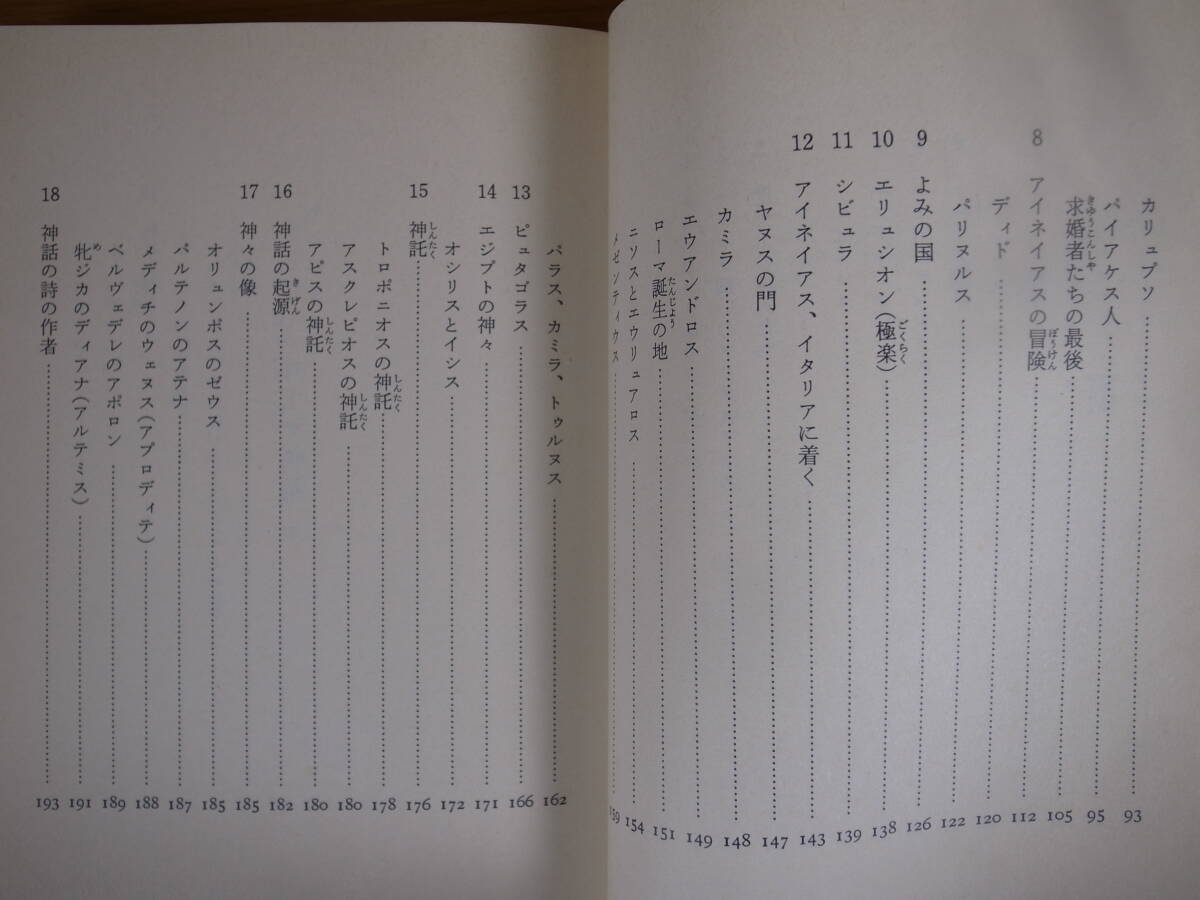 カリュプソ……93
パイアケス人……95
求婚者たちの最後……105
8 アイネイアスの冒険……112
ディド……120
パリヌルス……122
9 よみの国……126
10 エリュシオン(極楽)……138
11 シビュラ……139
12 アイネイアス、イタリアに着く……143
ヤヌスの門……147
カミラ……148
エウアンドロス……149
ローマ誕生の地……151
ニソスとエウリュアロス……154
メゼンティウス……159
パラス、カミラ、トゥルヌス……162
13 ピュタゴラス……166
14 エジプトの神々……171
オシリスとイシス……172
15 神託……176
トロポニオスの神託……178
アスクレピオスの神託……180
アピスの神託……180
16 神話の起源……182
17 神々の像……185
オリュンポスのゼウス……185
パルテノンのアテナ……187
メディチのウェヌス(アプロディテ)……188
ベルヴェデレのアポロン……189
牝ジカのディアナ(アルテミス)……191
18 神話の詩の作者……193